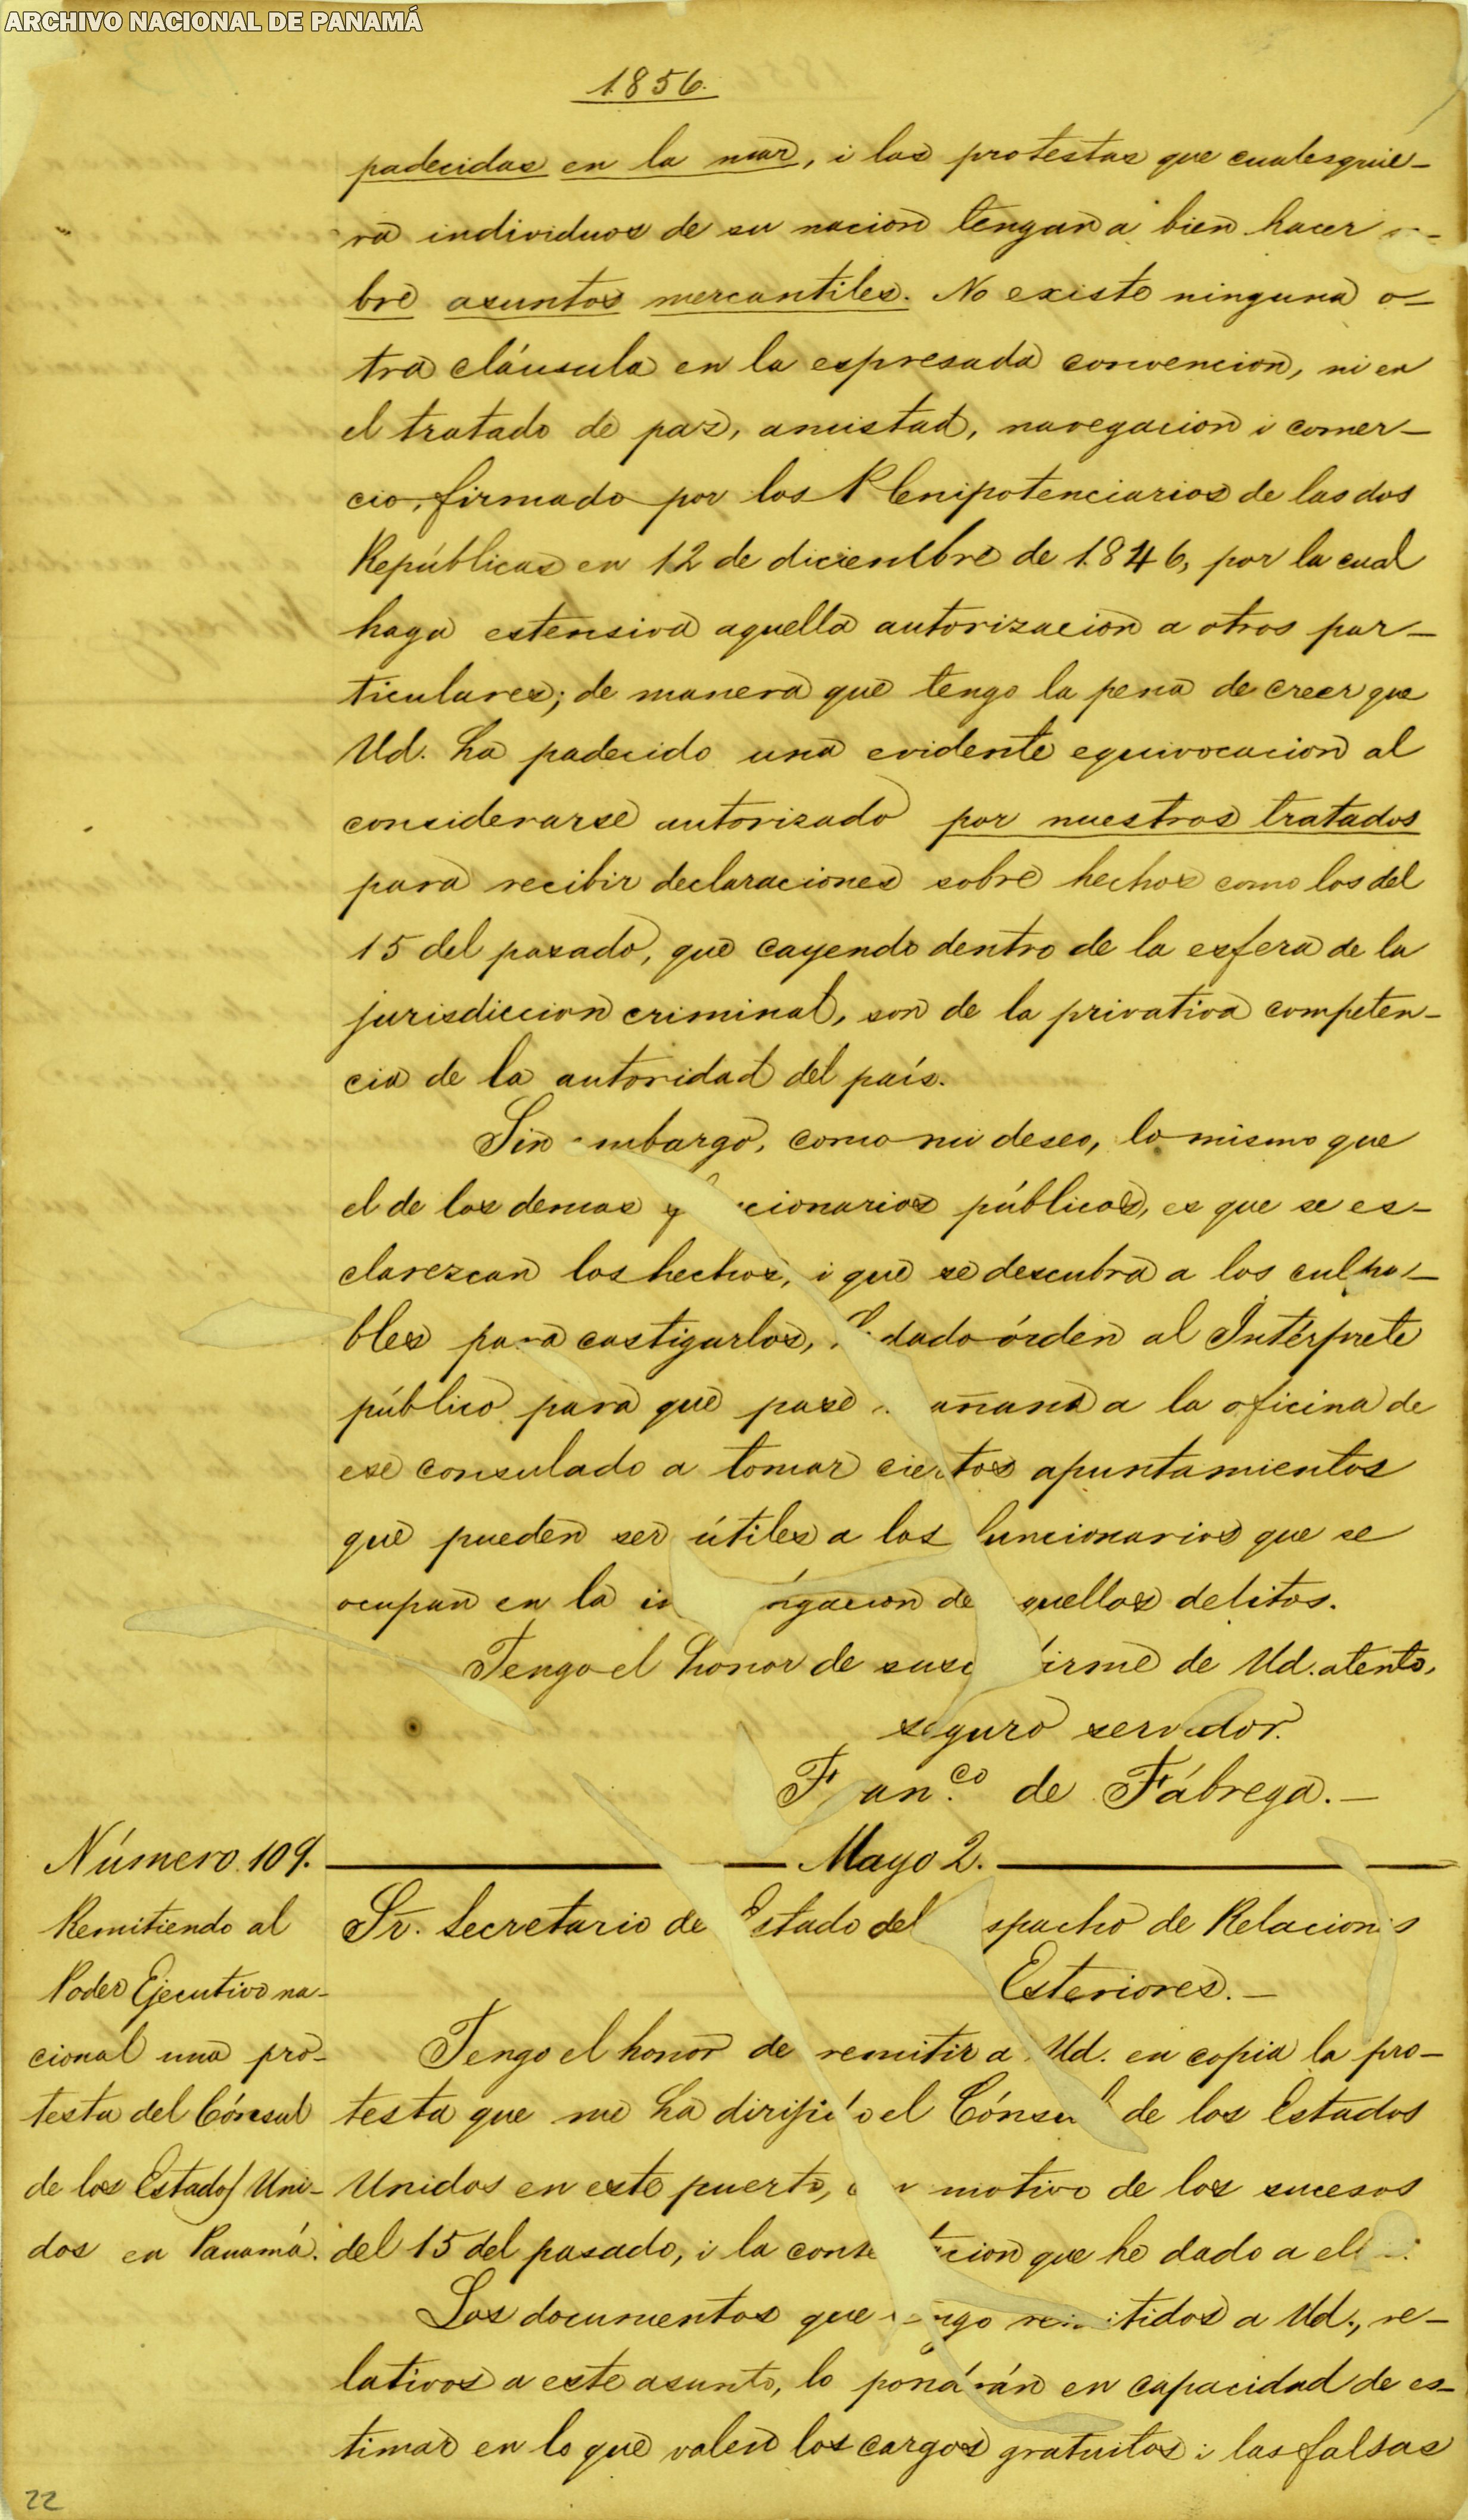 ARCHIVO NACIONAL DE PANAMÁ
1856.
padecidas en la mar, i las protestas que cualesquie-
ra individuos de su nacion tengan a bien hacer
bre asuntos mercantiles. No existe ninguna o-
tra cláusula en la espresada convencion, ni en
el tratado de paz, amistad, navegacion i comer-
cio, firmado por los Plenipotenciarios de las dos
Repúblicas en 12 de diciembre de 1846, por la cual
haga estensiva aquella autorizacion a otros par-
ticulares; de manera que tengo la pena de creer que
Ud. ha padecido una evidente equivocacion al
considerarse autorizado por nuestros tratados
para recibir declaraciones sobre hechos como los del
15 del pasado, que cayendo dentro de la esfera de la
jurisdiccion criminal, son de la privativa competen-
cia de la autoridad del país.
Sin embargo, como mi deseo, lo mismo que
el de los demas cionarios públicos, es que se es-
clarezcan los hechos, i que se descubra a los culpa-
bles para castigarlos, dado órden al Intérprete
público para que pase añana a la oficina de
ese consulado a tomar ciertos apuntamientos
que pueden ser útiles a los funcionarios que se
ocupan en la in igacion de quellos delitos.
Tengo el honor de susc irme de Ud. atento,
seguro servidor.
Fran.co de Fábrega.-
Número 109. Mayo 2.
Remitiendo al
Poder Ejecutivo na-
cional una pro-
testa del Cónsul
de los Estados Uni-
dos en Panamá.
Sr. Secretario de Estado del spacho de Relaciones
Esteriores.-
Tengo el honor de remitir a Ud. en copia la pro-
testa que me ha dirijido el Cónsul de los Estados
Unidos en este puerto, con motivo de los sucesos
del 15 del pasado, i la conte tacion que he dado a ella.
Los documentos que tengo remitidos a Ud., re-
lativos a este asunto, lo pondrán en capacidad de es-
timar en lo que valen los cargos gratuitos i las falsas
22